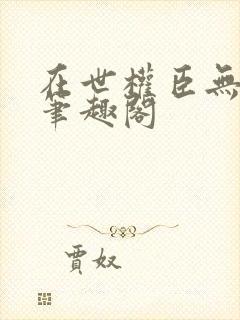 在世權臣無
筆趣閣
賈奴